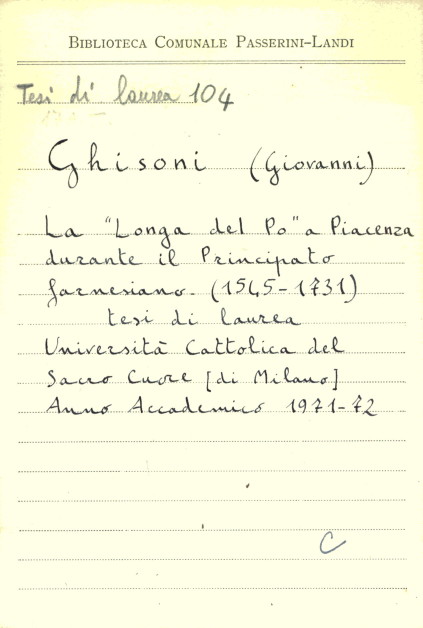 BIBLIOTECA COMUNALE PASSERINI-LANDI
Tesi di laurea 104
Ghisoni (Giovanni)
La "Longa del Po" a Piacenza
durante il Principato
farnesiano. (1545-1731)
tesi di laurea
Università Cattolica del
Sacro Cuore [di Milano]
Anno Accademico 1971-72
C